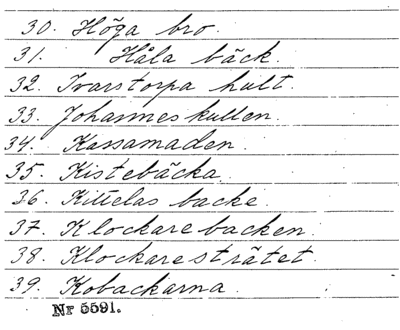 30. Höga bro.
31. Håla bäck.
32. Ivarstorpa hult.
33. Johanneskullen.
34. Kassamaden.
35. Kistebäcka.
36. Kittelas backe.
37. Klockarebacken.
38. Klockaresträtet.
39. Kobackarna.
Nr 5591.